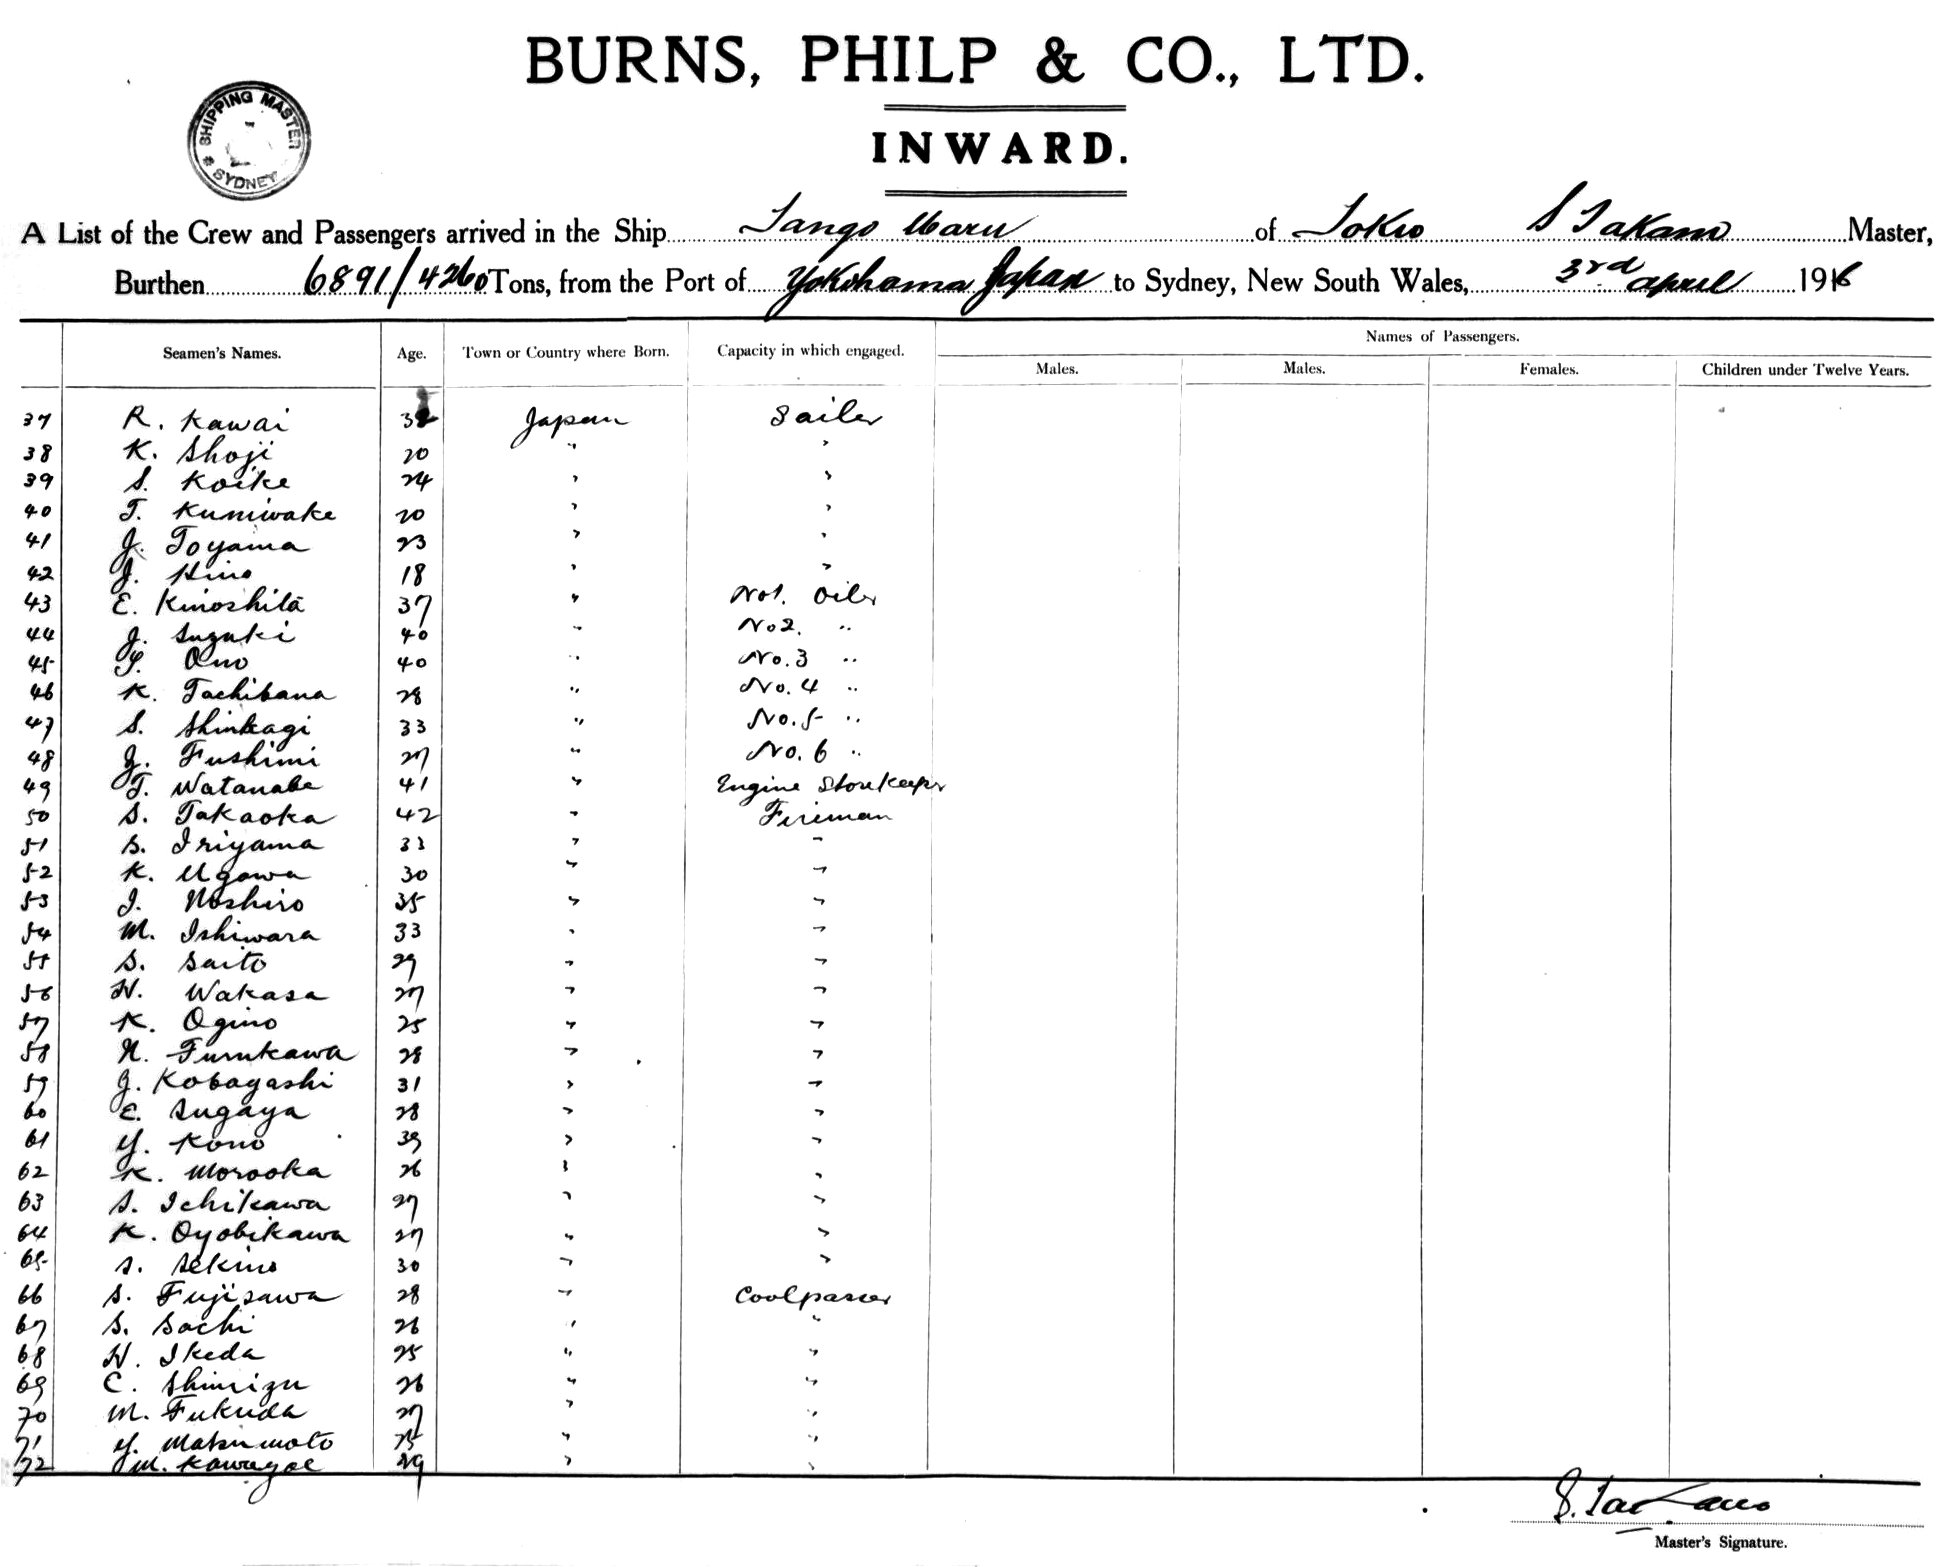 BURNS, PHILP & CO., LTD.
INWARD.
SHIPPING MASTER SYDNEY
A List of the Crew and Passengers arrived in the Ship Tango Maru of Tokio S Takano Master,
Burthen 6891/4260 Tons, from the Port of Yokohama Japan to Sydney, New South Wales, 3rd april 1916
Names of Passengers.
Seamen's Names. Age. Town or Country where Born. Capacity in which engaged. Males. Males. Females. Children under Twelve Years.
37 R. Kawai Japan Sailer
38 K. Shoji 20 " "
39 S. Koike 24 " "
40 T. Kuniwake 20 " "
41 J. Toyama 23 " "
42 J. Hino 18 " "
43 E. Kinoshita 37 " No1. Oiler
44 J. Suzuki 40 " No2. "
45 Y. Ono 40 " No. 3 "
46 K. Tachibana 28 " No. 4 "
47 S. Shinkagi 33 " No. 5 "
48 Z. Fushimi 27 " No. 6 "
49 T. Watanabe 41 " Engine Storekeeper
50 S. Takaoka 42 " Fireman
51 S. Iriyama 33 " "
52 K. Ugawa 30 " "
53 I. Noshiro 35 " "
54 M. Ishiwara 33 " "
55 S. Saito 29 " "
56 H. Wakasa 27 " "
57 K. Ogino 25 " "
58 N. Furukawa 28 " "
59 J. Kobayashi 31 " "
60 E. Sugaya 28 " "
61 Y. Kono 39 " "
62 K. Morooka 26 " "
63 S. Ichikawa 27 " "
64 K. Oyobikawa 27 " "
65 S. Sekino 30 " "
66 S. Fujisawa 28 " Coolpasser
67 S. Sachi 26 " "
68 H. Ikeda 25 " "
69 C. Shimizu 26 " "
70 M. Fukuda 27 " "
71 Y. Matsumoto 25 " "
72 M. Kawagoe 29 " "
S. Takano
Master's Signature.